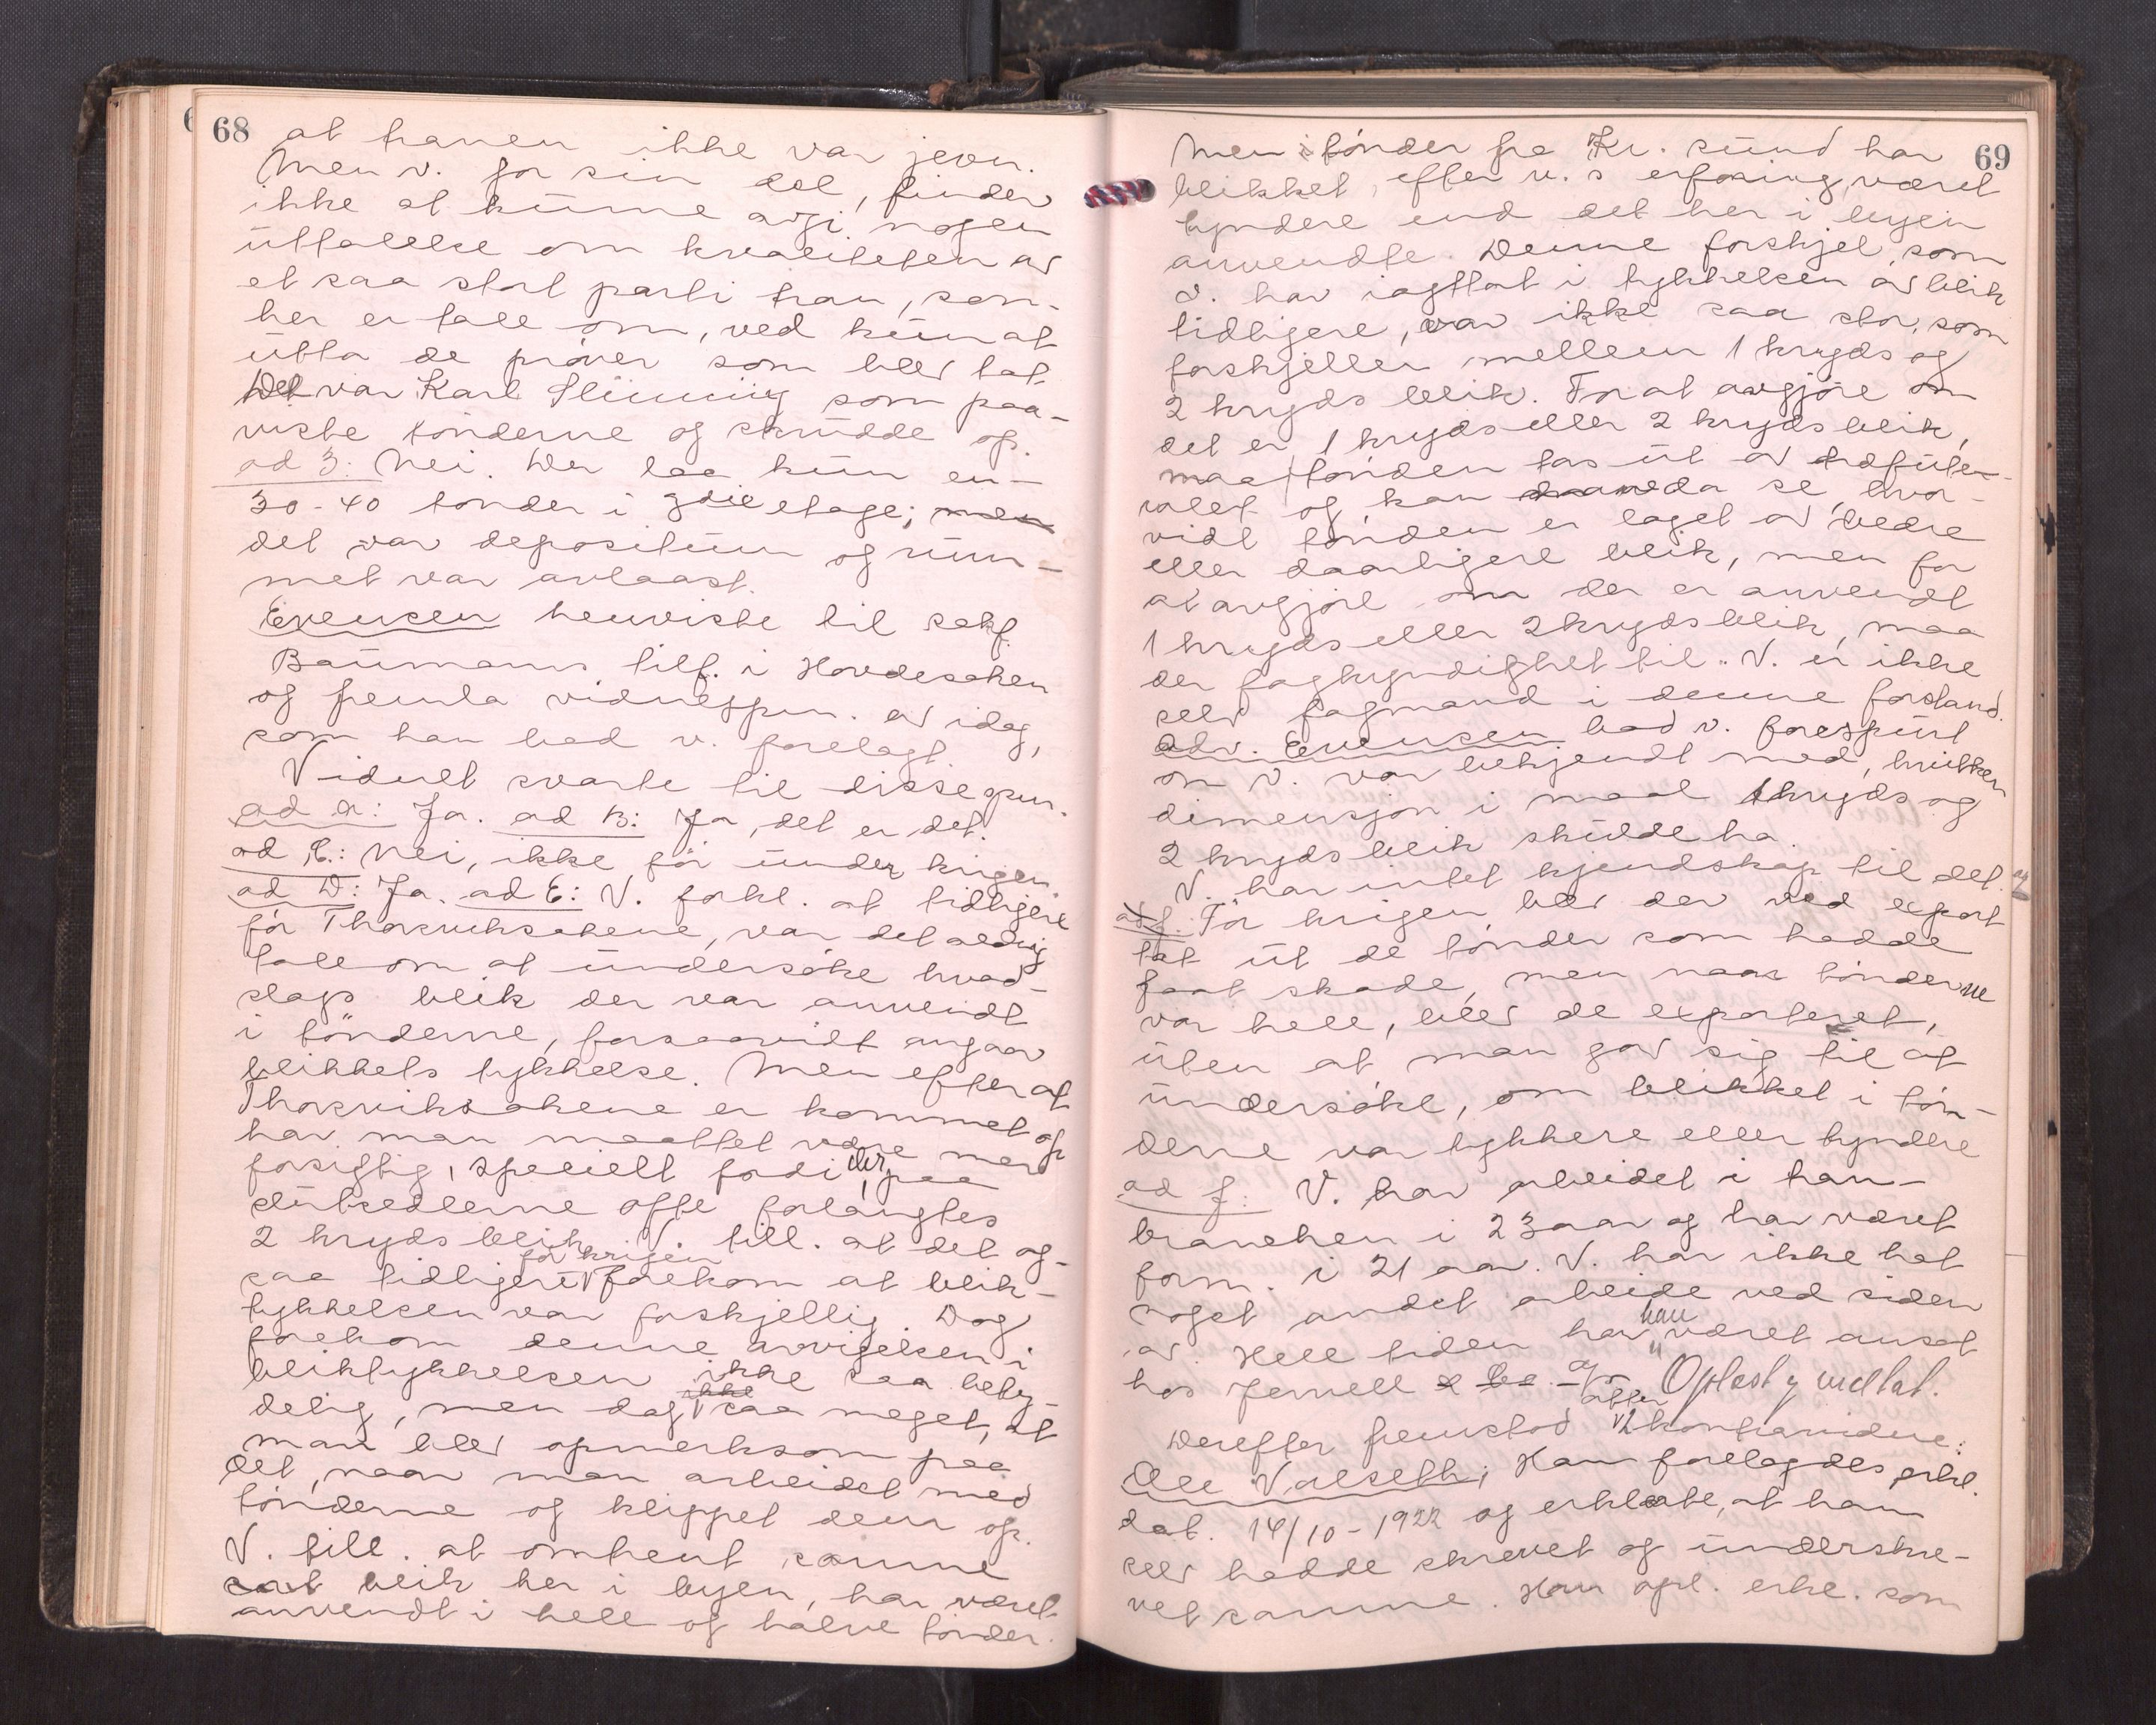 68
at tranen ikke var jevn.
Men v. for sin del, finder
ikke at kunne avgi nogen
uttalelse om kvaliteten av
et saa stort parti tran, som
her er tale om, ved kun at
utta de prøver som blev tat.
Det var Karl Slinning som paa-
viste tønderne og skrudde op.
ad 3: Nei. Der laa kun en-
30-40 tønder i 3die etage; men
det var depositum og rum-
met var avlaast.
Evensen henviste til sakf.
Baumanns tilf. i Hovdesaken
og fremla vidnespm. av idag,
som han bad v. forelagt.
Vidnet svarte til disse spm.
ad A: Ja. ad B: Ja, det er det.
ad C.: Nei, ikke før under krigen.
ad D: Ja. ad E: V. forkl. at tidligere
før Thorsviksakene, var det aldrig
tale om at undersøke hvad-
slags blik der var anvendt
i tønderne, forsaavidt angaar
blikkets tykkelse. Men efter at
Thorsviksakene er kommet op
har man maattet være mer
forsigtig, specielt fordi der paa
slutsedlerne ofte forlangtes
2 kryds blik. V. till. at det og-
saa tidligere før krigen forekom at blik-
tykkelsen var forskjellig. Dog
forekom denne avvigelsen i
bliktykkelsen ikke saa bety-
delig, men dog ikke saa meget, at
man blev opmerksom paa
det, naar man arbeidet med
tønderne og klippet dem op.
V. till. at omtrent samme
sort blik her i byen, har været
anvendt i hele og halve tønder.
69
Men i tønder fra Kr. sund har
blikket, efter v.s erfaring, været
tyndere end det her i byen
anvendte. Denne forskjel, som
v. har iagttat i tykkelsen av blik
tidligere, var ikke saa stor, som
forskjellen mellem 1 kryds og
2 kryds blik. For at avgjøre om
det er 1 kryds eller 2 kryds blik,
maa tønden tas ut av træfute-
ralet og kan man da se, hvor-
vidt tønden er laget av bedre
eller daarligere blik, men for
at avgjøre om der er anvendt
1 kryds eller 2 kryds blik, maa
der fagkyndighet til. V. er ikke
selv fagmand i denne forstand.
Adv. Evensen bad v. forespurt
om v. var bekjendt med, hvilken
dimensjon i maal 1 kryds og
2 kryds blik skulde ha.
V. har intet kjendskap til det.
ad f. Før krigen blev der ved export
tat ut de tønder som hadde
faat skade, men naar tønderne
var hele, blev de exportert,
uten at man gav sig til at
undersøke, om blikket i tøn-
derne var tykkere eller tyndere
ad f: V. har arbeidet i tran-
branchen i 23 aar og har været
form. i 21 aar. V. har ikke hat
noget andet arbeide ved siden
av. Hele tiden har han været ansat
hos Jervell & Co. Oplest og vedtat.
Derefter fremstod atter kontravidne:
Ole Valseth; Han forelagdes erkl.
dat. 14/10-1922 og erklærte, at han
selv hadde skrevet og underskre-
vet samme. Han opl. erkl. som